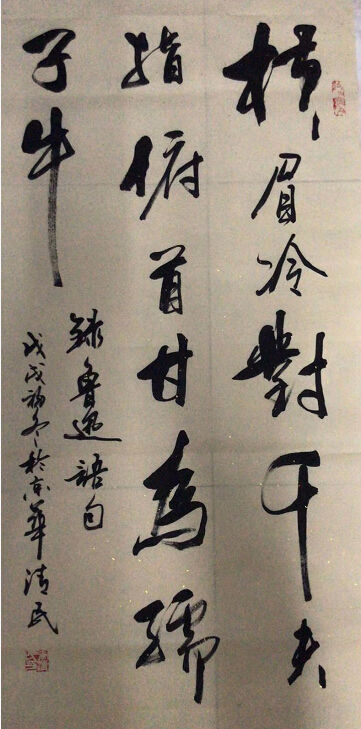 橫眉冷對千夫
指俯首甘為孺
子牛
錄魯迅語句
戊戌初冬於京華清民